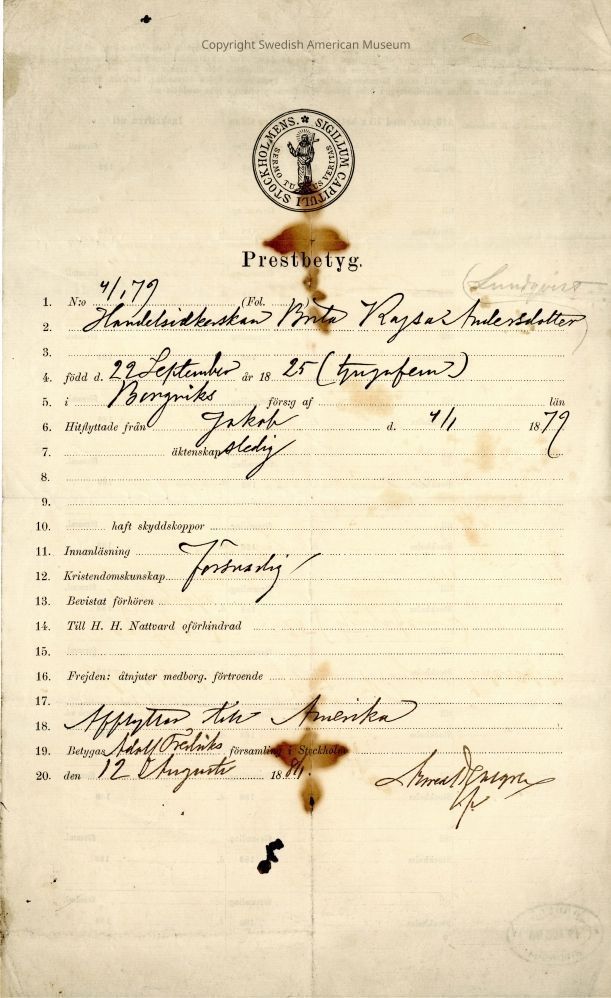 Copyright Swedish American Museum
SIGILLUM CAPITULI STOCKHOLMENS.
SERMO TUUS VERITAS
Prestbetyg.
(Lundqvist
1. N:o 4/1 79 (Fol.
2. Handelsidkerskan Brita Kajsa Andersdotter
3.
4. född d. 22 September år 18 25 (tjugofem)
5. i Bergviks förs:g af län
6. Hitflyttade från Jakob d. 4/1 1879
7. äktenskap sledig
8.
9.
10. haft skyddskoppor
11. Innanläsning
12. Kristendomskunskap Försvarlig
13. Bevistat förhören
14. Till H. H. Nattvard oförhindrad
15.
16. Frejden: åtnjuter medborg. förtroende
17.
18. Afflyttar till Amerika
19. Betygas Adolf Fredriks församling i Stockholm
20. den 12 Augusti 18